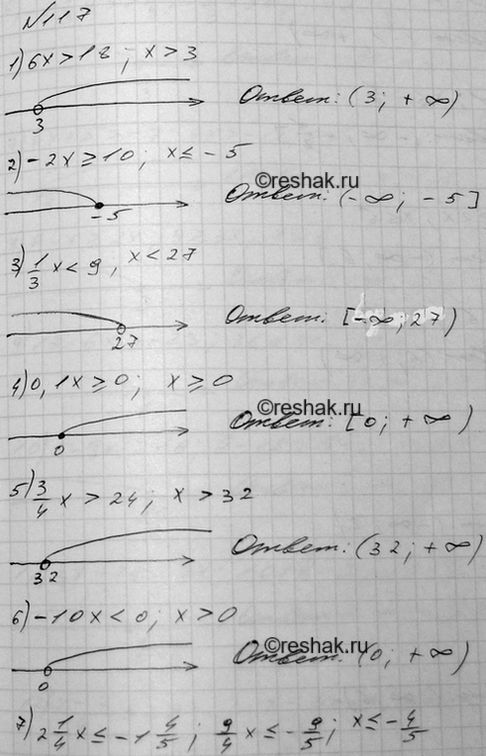 №117
1) 6x > 18; x > 3
Ответ: (3; +∞)
3
2) -2x ≥ 10; x ≤ -5
©reshak.ru
Ответ: (-∞; -5]
-5
3) 1/3 x < 9, x < 27
Ответ: [-∞; 27)
27
4) 0,1x ≥ 0; x ≥ 0
©reshak.ru
Ответ: [0; +∞)
0
5) 3/4 x > 24; x > 32
Ответ: (32; +∞)
32
6) -10x < 0; x > 0
©reshak.ru
Ответ: (0; +∞)
0
7) 2 1/4 x ≤ -1 4/5; 9/4 x ≤ -9/5; x ≤ -4/5